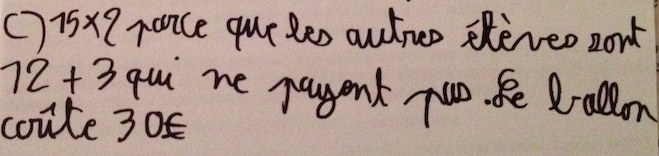 C) 15x2 parce que les autres élèves sont
12 + 3 qui ne payent pas. Le ballon
coûte 30€